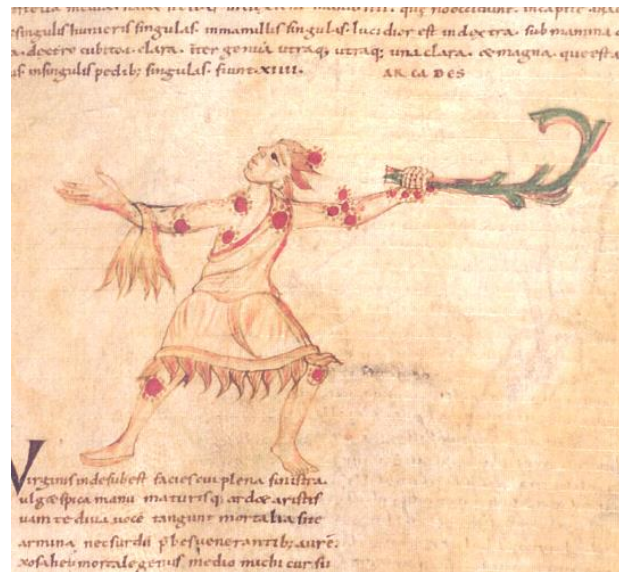 singulis humeris singulas. in mamillis singulas. lucidior est in dextra. sub mamma
dextro cubito .i. clara. iter genua utraq; utraq; una clara. & magna. que est
us in singulis pedib; singulas. fiunt. xiiii.
AR CA DES
Virginis inde subest facies cui plena sinistra
manu maturisq; ardet aristis
uam te diua uoce tangunt mortalia site
armina nec surdā p̄bes uenerantib; aurē.
xosa heu mortale genus medio michi cursu